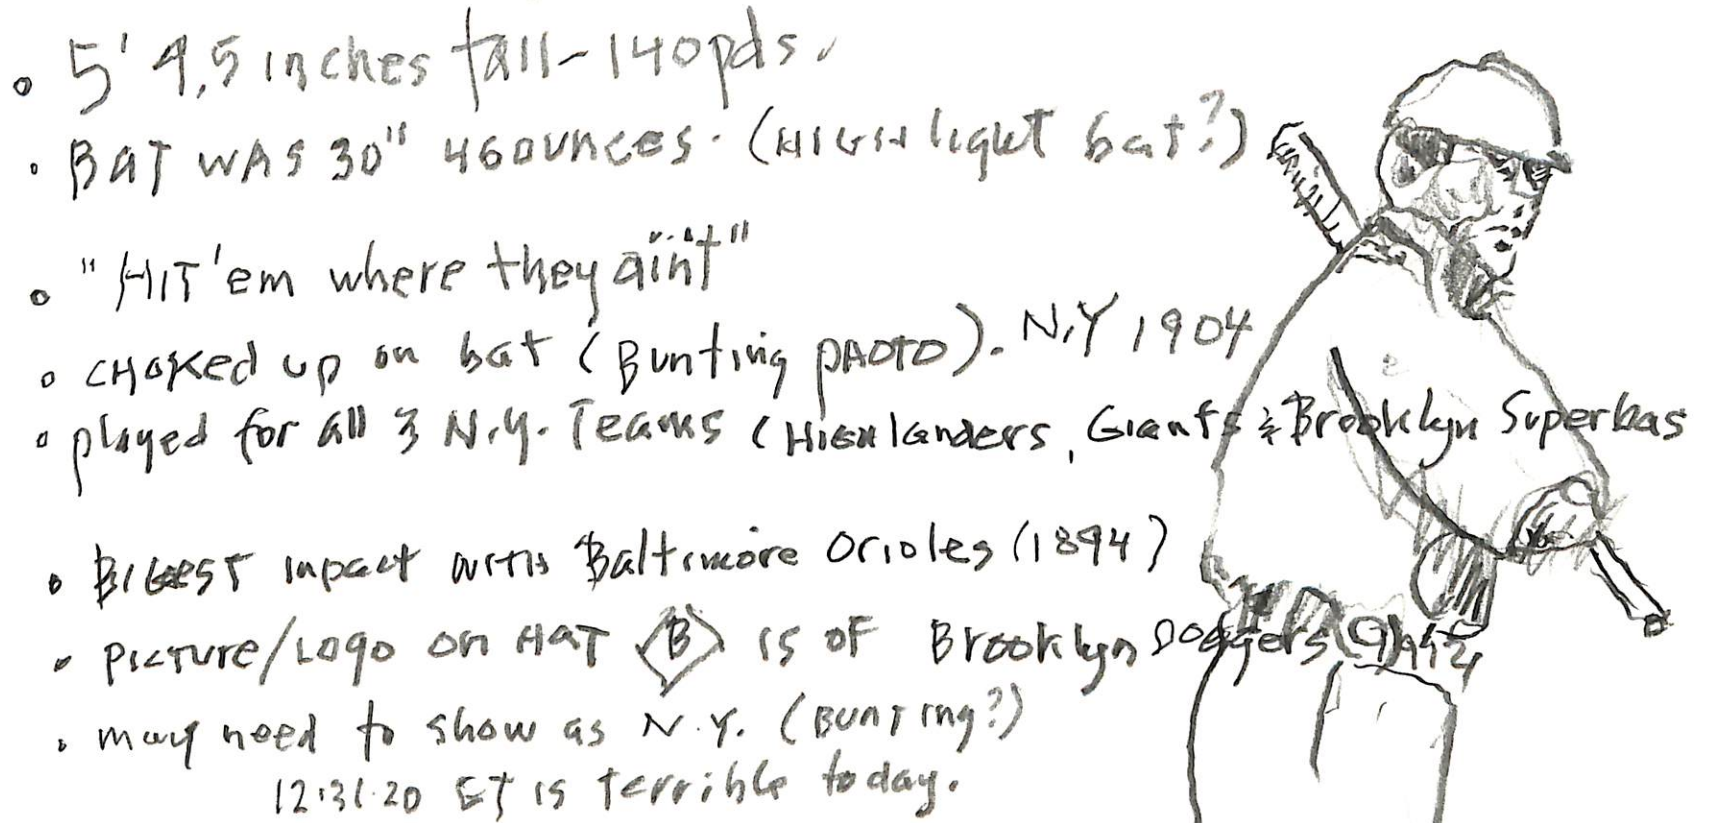 • 5' 4.5 inches tall - 140 pds.
• BAT WAS 30" 46 ounces. (HIGHlight bat?)
• "HIT 'em where they aint"
• CHOKED up on bat (Bunting PHOTO). N.Y 1904
• played for all 3 N.Y. Teams (Highlanders, Giants & Brooklyn Superbas
• BIGEST Impact WITH Baltimore Orioles (1894)
• PICTURE/Logo on HAT B is OF Brooklyn Dodgers
• may need to show as N.Y. (BUNTing?)
12.31.20 ET is terrible today.